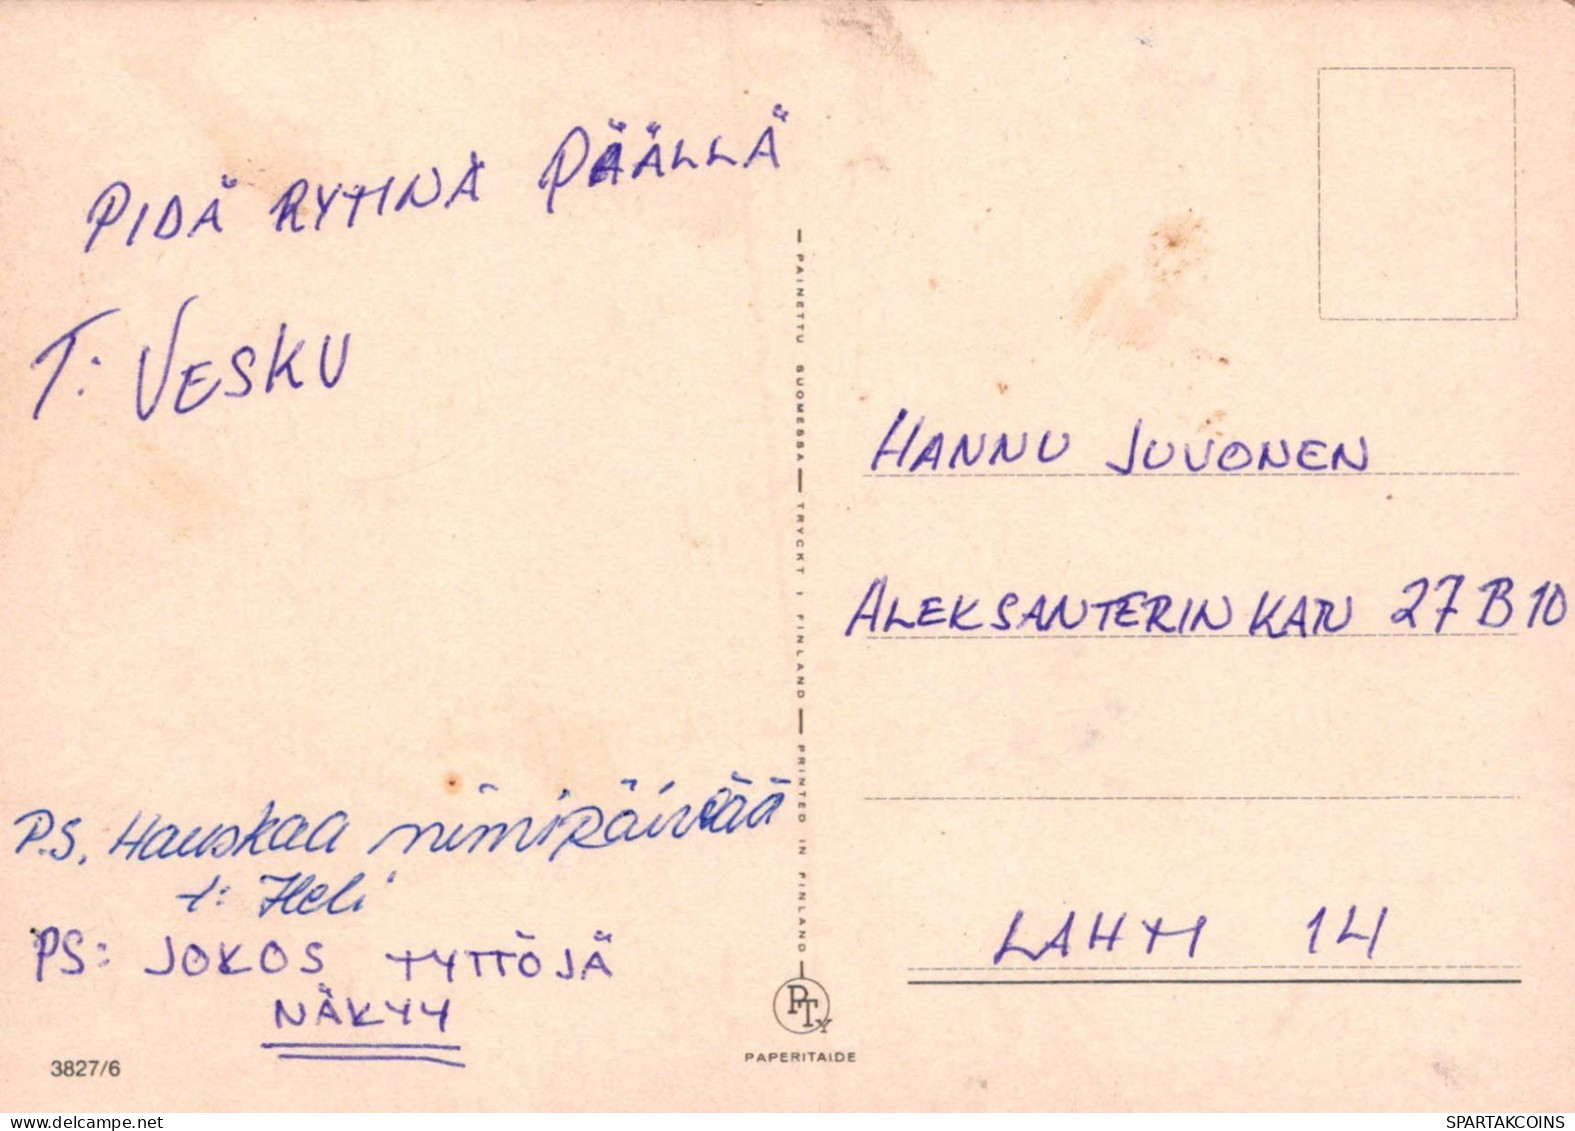 PIDÄ RYTINÄ PÄÄLLÄ
T: VESKU
P.S. Hauskaa nimipäivää
t: Heli
PS: JOKOS TYTTÖJÄ
NÄKYY
3827/6
PAINETTU SUOMESSA — TRYCKT I FINLAND — PRINTED IN FINLAND
PTY
PAPERITAIDE
HANNU JUVONEN
ALEKSANTERINKATU 27 B 10
LAHTI 14
SPARTAKCOINS
www.delcampe.net